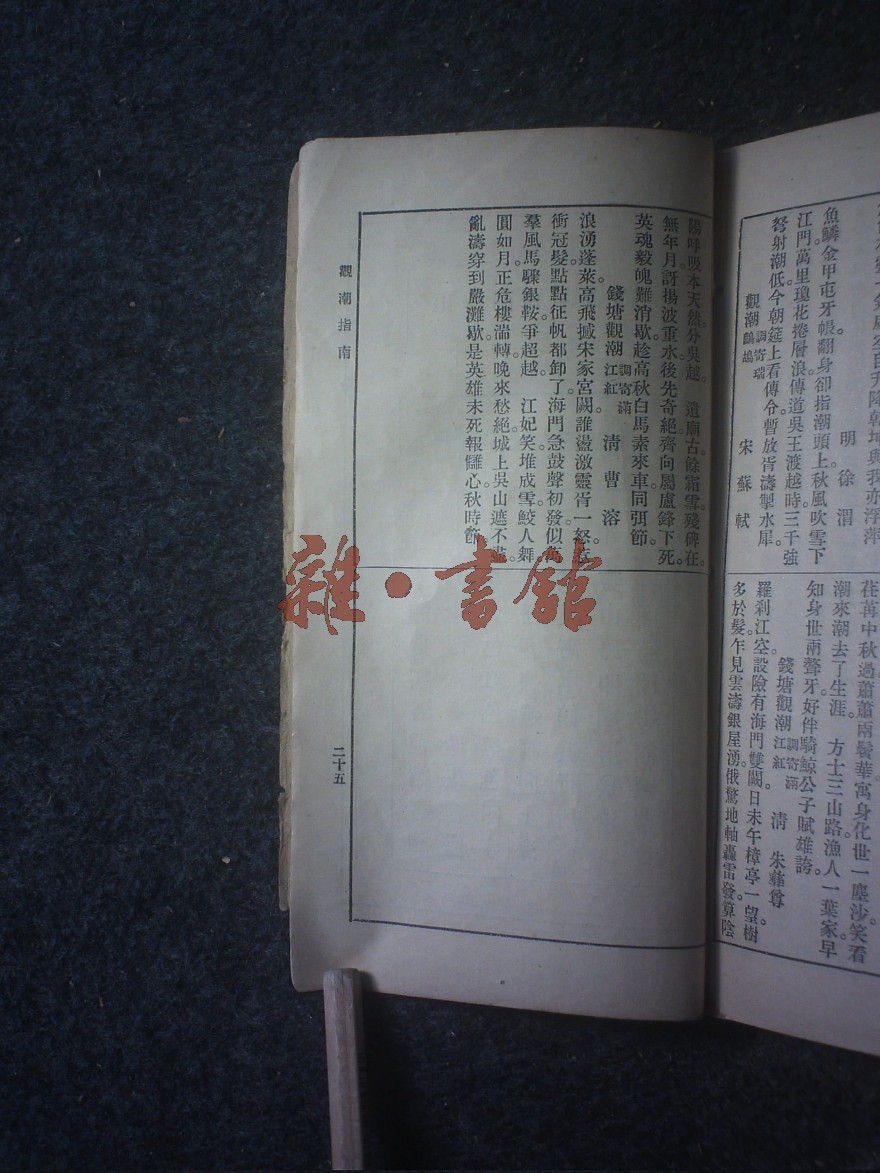 自升降乾坤與我亦浮萍
明 徐 渭
魚鱗金甲屯牙帳。翻身卻指潮頭上。秋風吹雪下
江門。萬里瓊花捲層浪。傳道吳王渡越時。三千強
弩射潮低。今朝筵上看傳令。暫放胥濤掣水犀。
觀潮 調寄瑞鷓鴣 宋 蘇 軾
荏苒中秋過。蕭蕭兩鬢華。寓身化世一塵沙。笑看
潮來潮去了生涯。 方士三山路。漁人一葉家。早
知身世兩聱牙。好伴騎鯨公子賦雄誇。
錢塘觀潮 調寄滿江紅 清 朱彝尊
羅刹江空。設險有海門雙闕。日未午樟亭一望。樹
多於髮。乍見雲濤銀屋湧。俄驚地軸轟雷發。算陰
陽呼吸本天然。分吳越。 遺廟古。餘霜雪。殘碑在。
無年月。訝揚波重水。後先奇絕。齊向屬盧鋒下死。
英魂毅魄難消歇。趁高秋白馬素來車。同弭節。
錢塘觀潮 調寄滿江紅 清 曹 溶
浪湧蓬萊。高飛撼宋家宮闕。誰盪激靈胥一怒。惹
衝冠髮。點點征帆都卸了。海門急鼓聲初發。似萬
羣風馬驟銀鞍。爭超越。 江妃笑堆成雪。鮫人舞。
圓如月。正危樓湍轉。晚來愁絕。城上吳山遮不盡。
亂濤穿到嚴灘歇。是英雄未死報讎心。秋時節。
觀潮指南
二十五
雜·書館